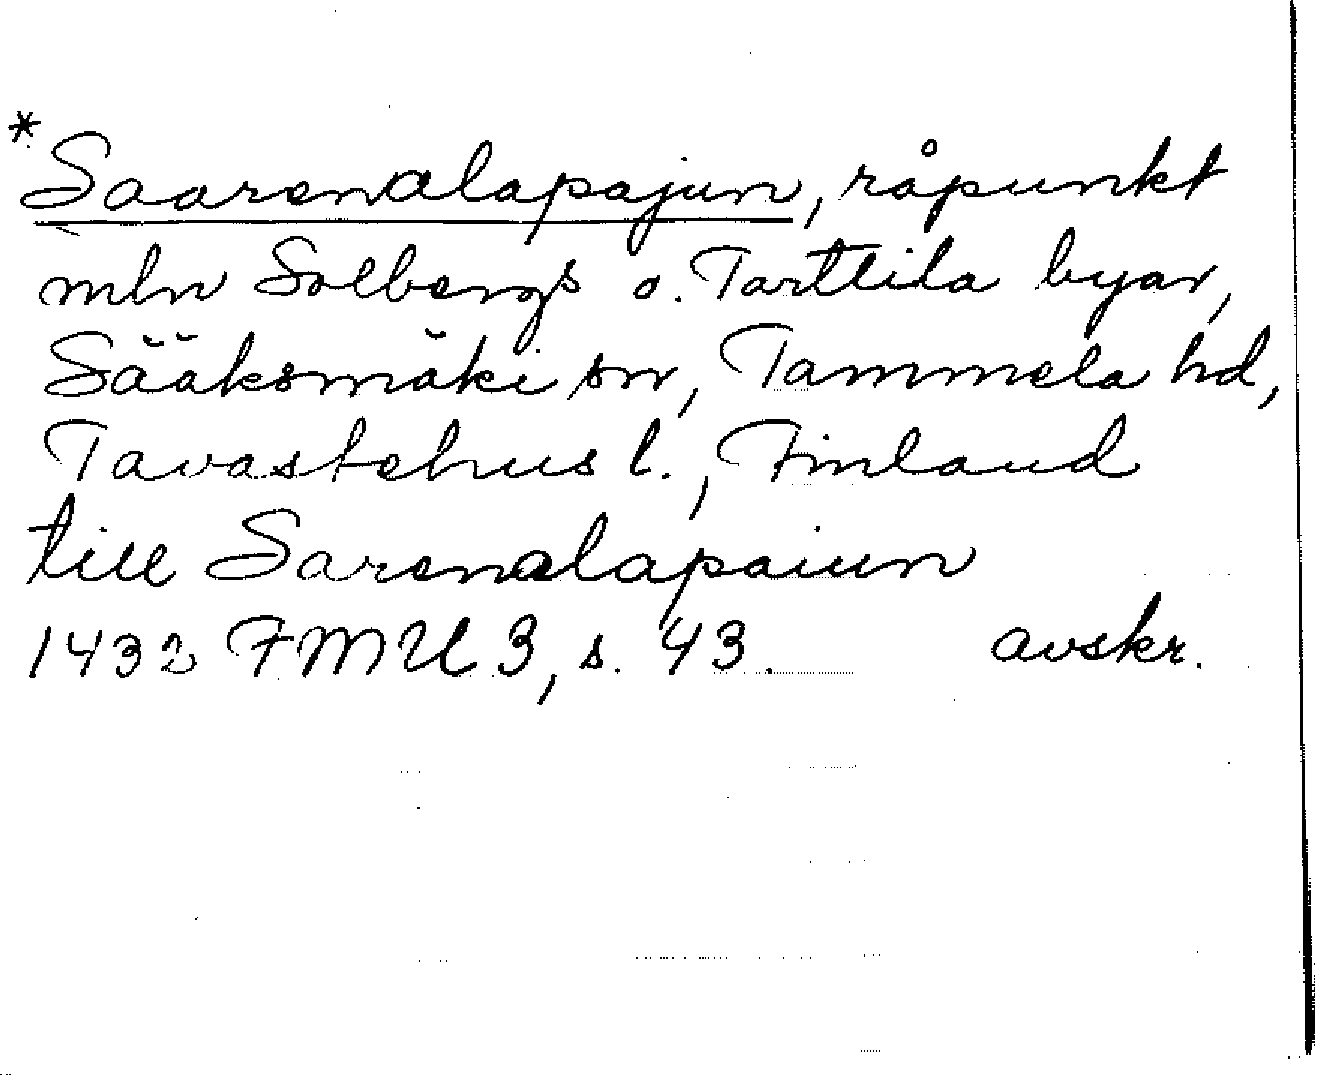 *
Saarenalapajun, råpunkt
mln Solbergs o. Tarttila byar,
Sääksmäki sn, Tammela hd,
Tavastehus l., Finland
till Sarenalapaiun
1432 FMU 3, s. 43. avskr.